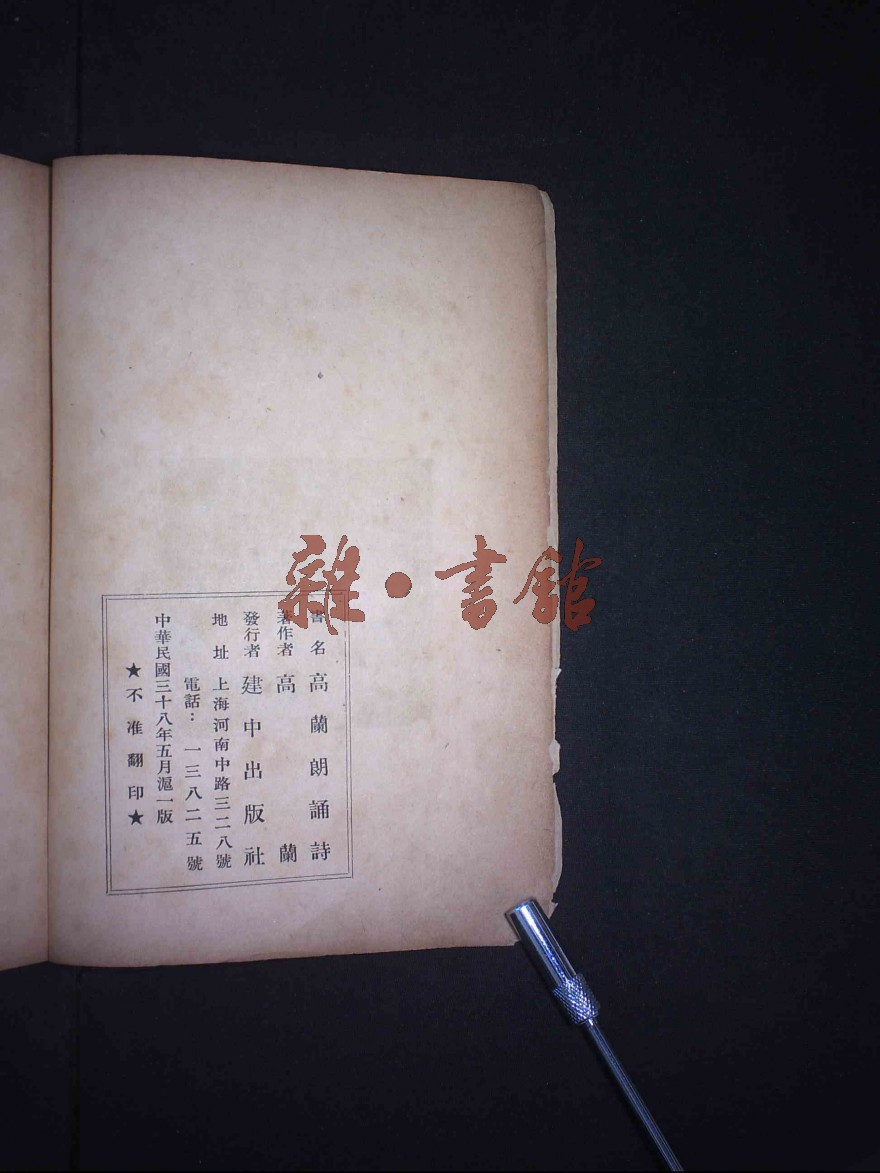 雜·書館
書名 高蘭朗誦詩
著作者 高蘭
發行者 建中出版社
地址 上海河南中路三二八號
電話：一三八二五號
中華民國三十八年五月滬一版
★不准翻印★